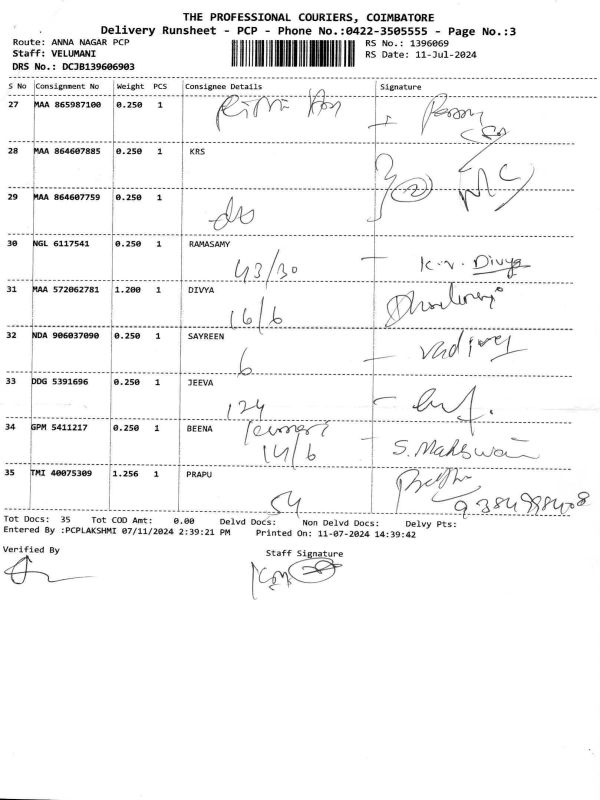 THE PROFESSIONAL COURIERS, COIMBATORE
Delivery Runsheet - PCP - Phone No.:0422-3505555 - Page No.:3
Route: ANNA NAGAR PCP RS No.: 1396069
Staff: VELUMANI RS Date: 11-Jul-2024
DRS No.: DCJB139606903
S No Consignment No Weight PCS Consignee Details Signature
27 MAA 865987100 0.250 1
28 MAA 864607885 0.250 1 KRS
29 MAA 864607759 0.250 1
30 NGL 6117541 0.250 1 RAMASAMY
43/30 K.V. Divya
31 MAA 572062781 1.200 1 DIVYA
16/6
32 NDA 906037090 0.250 1 SAYREEN
6
33 DDG 5391696 0.250 1 JEEVA
124
34 GPM 5411217 0.250 1 BEENA
14/6
35 TMI 40075309 1.256 1 PRAPU
54
Tot Docs: 35 Tot COD Amt: 0.00 Delvd Docs: Non Delvd Docs: Delvy Pts:
Entered By :PCPLAKSHMI 07/11/2024 2:39:21 PM Printed On: 11-07-2024 14:39:42
Verified By Staff Signature